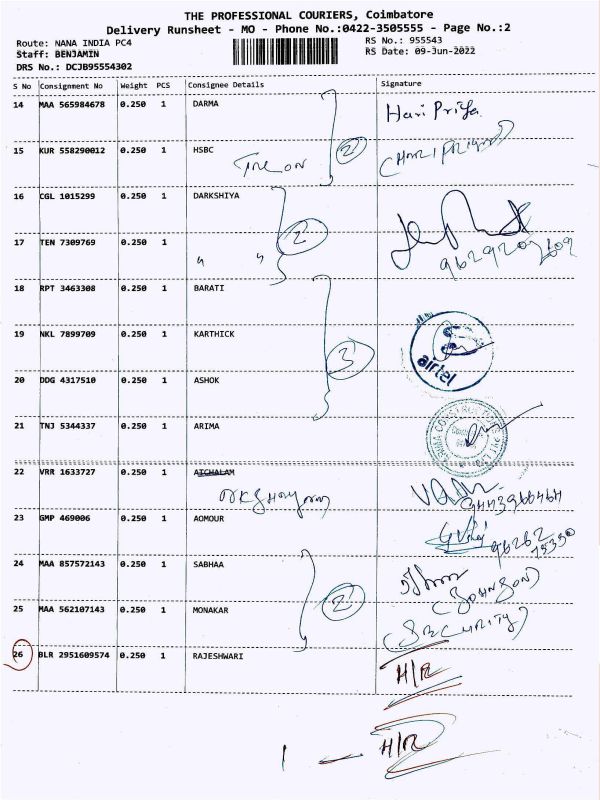 THE PROFESSIONAL COURIERS, Coimbatore
Delivery Runsheet - MO - Phone No.:0422-3505555 - Page No.:2
Route: NANA INDIA PC4
RS No.: 955543
Staff: BENJAMIN
RS Date: 09-Jun-2022
DRS No.: DCJB95554302
S No Consignment No Weight PCS Consignee Details Signature
14 MAA 565984678 0.250 1 DARMA Hari Priya
15 KUR 558290012 0.250 1 HSBC 2
(HARI PRIYA)
16 CGL 1015299 0.250 1 DARKSHIYA
17 TEN 7309769 0.250 1 2
" "
18 RPT 3463308 0.250 1 BARATI
19 NKL 7899709 0.250 1 KARTHICK
airtel
20 DDG 4317510 0.250 1 ASHOK 3
21 TNJ 5344337 0.250 1 ARIMA
22 VRR 1633727 0.250 1 AICHALAM
9443966464
23 GMP 469006 0.250 1 AOMOUR
24 MAA 857572143 0.250 1 SABHAA
(JOHNSON)
25 MAA 562107143 0.250 1 MONAKAR 2
(SECURITY)
26 BLR 2951609574 0.250 1 RAJESHWARI H/R
1 — H/R